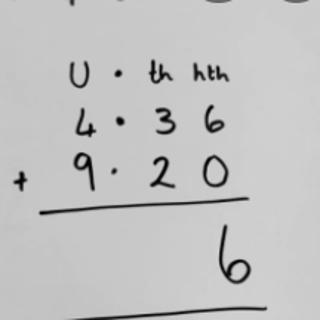 U · th hth
4 · 3 6
+ 9 · 2 0
6